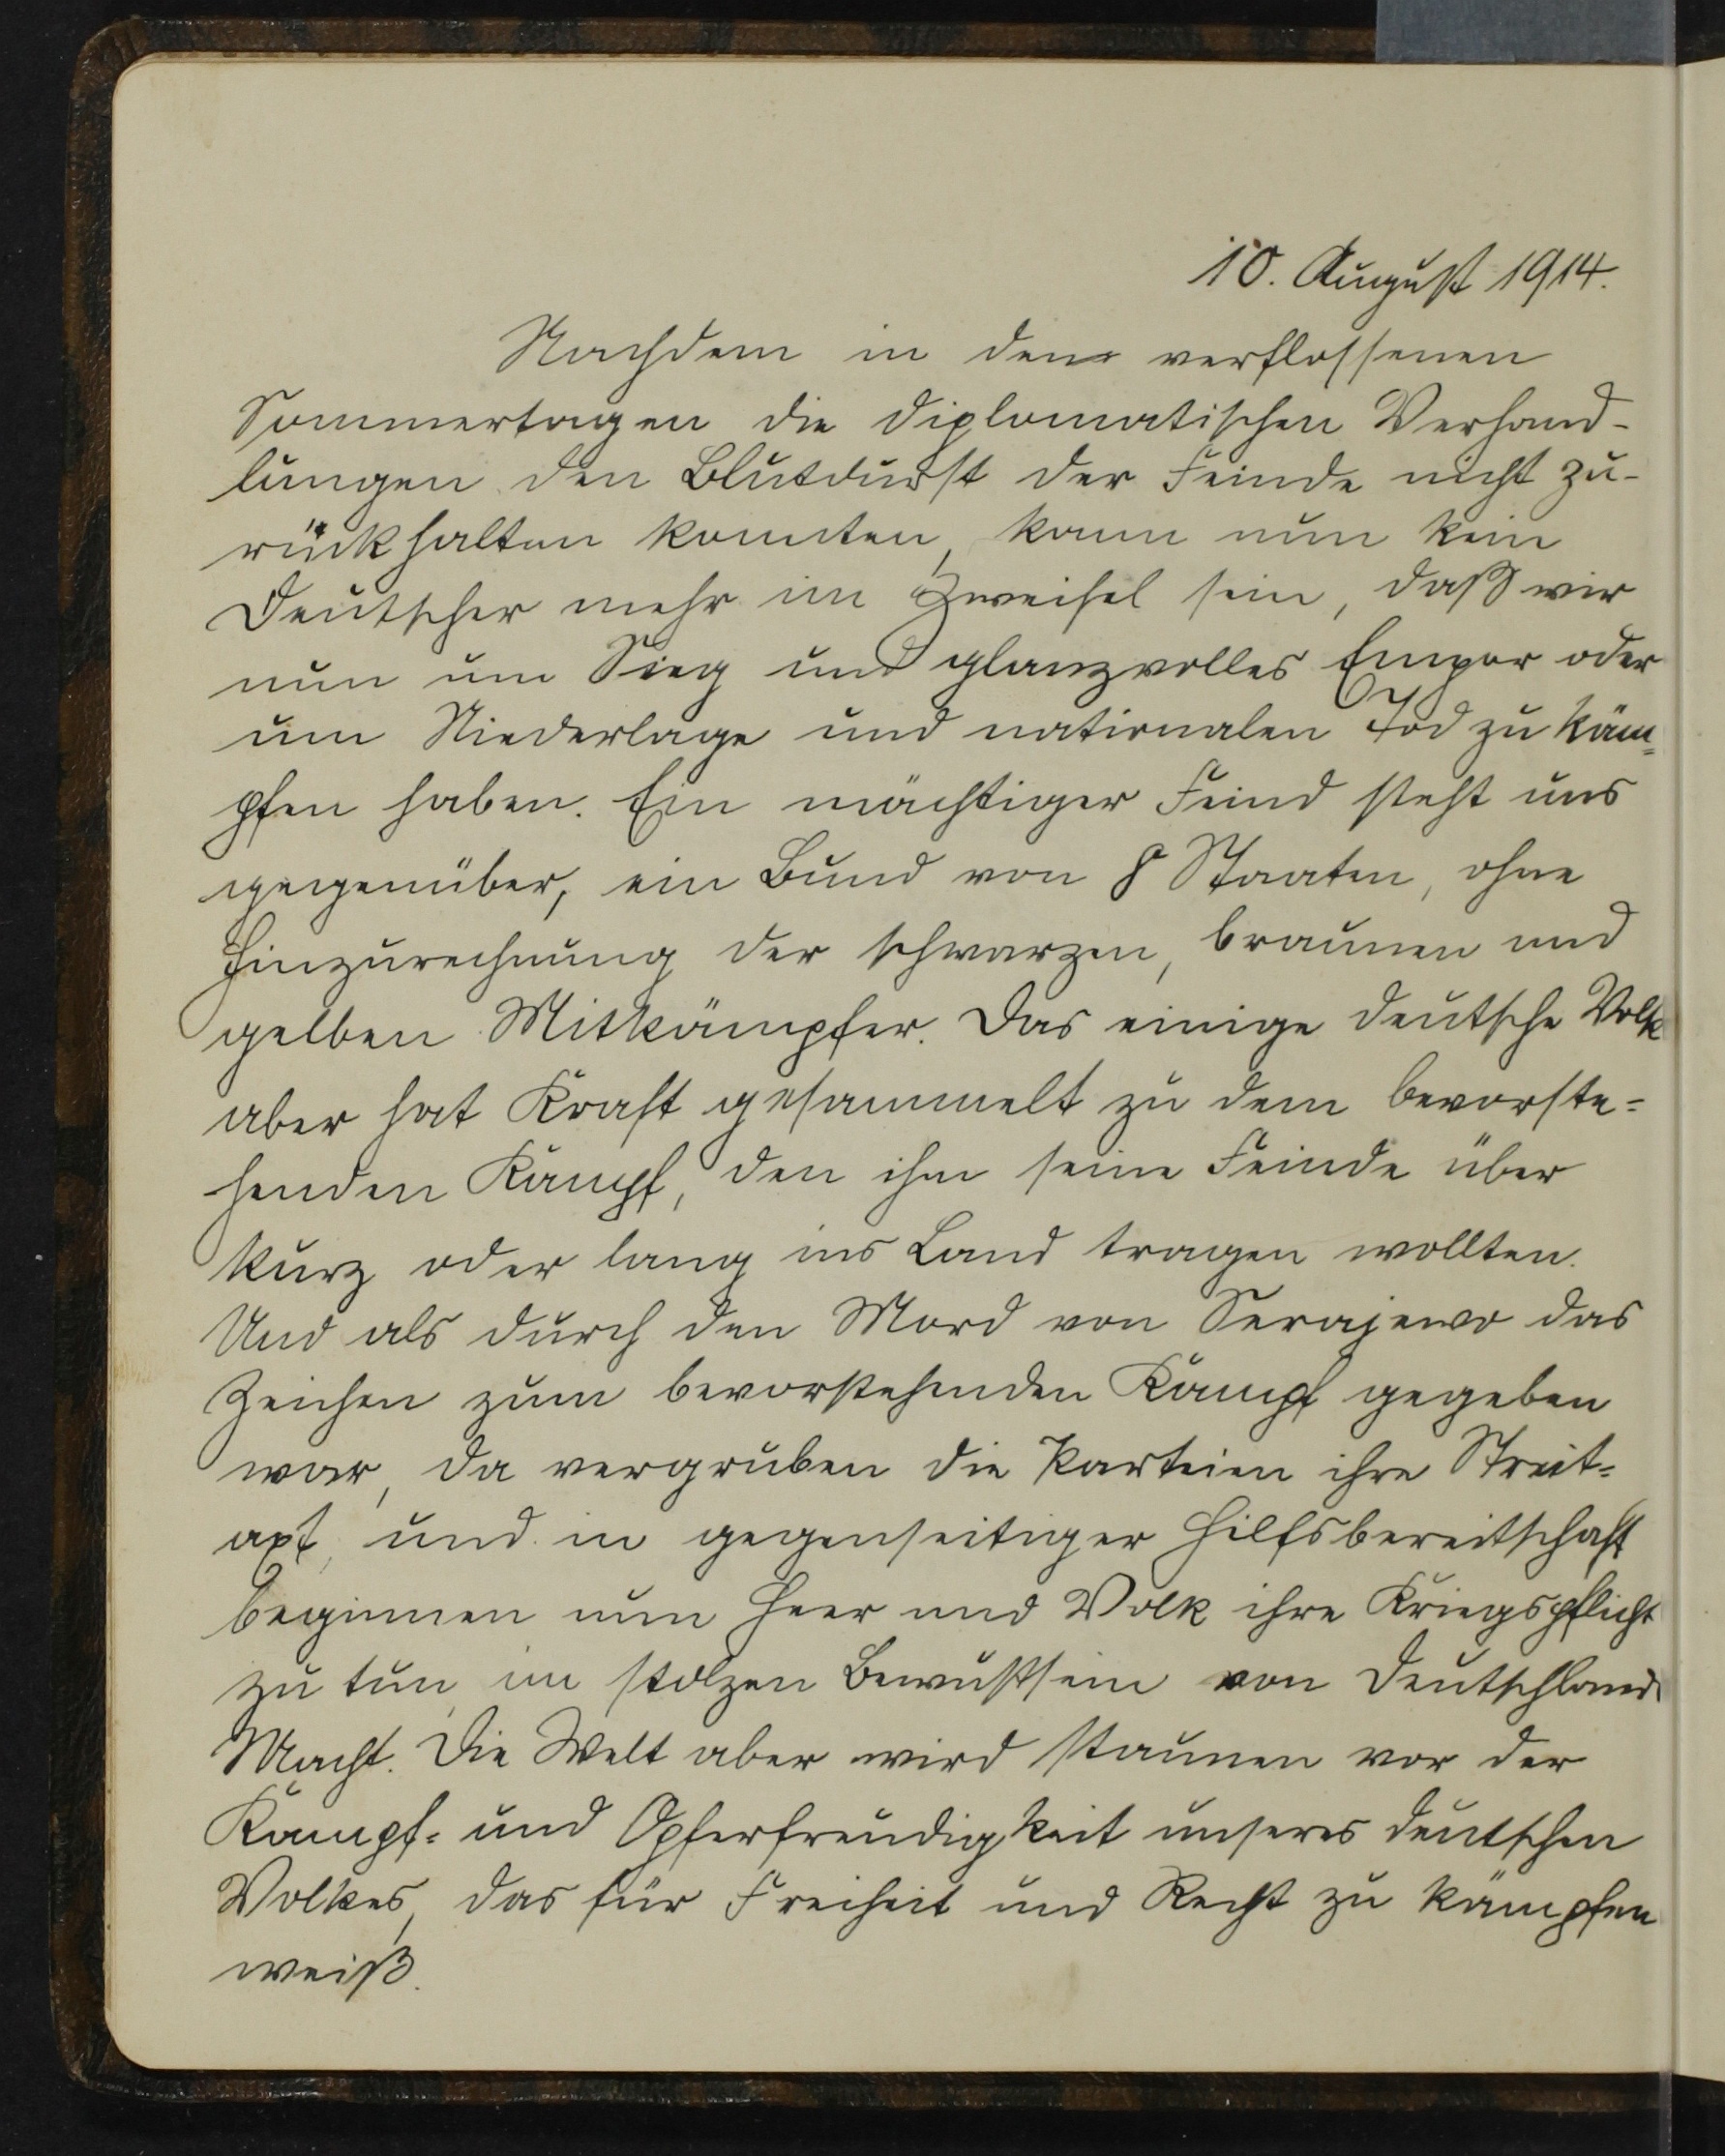 10. August 1914.
Nachdem in den verflossenen
Sommertagen die diplomatischen Verhand-
lungen den Blutdurst der Feinde nicht zu-
rückhalten konnten, kann nun kein
Deutscher mehr im Zweifel sein, daß wir
nun um Sieg und glanzvolles Empor oder
um Niederlage und nationalen Tod zu käm=
pfen haben. Ein mächtiger Feind steht uns
gegenüber, ein Bund von 8 Staaten, ohne
Hinzurechnung der schwarzen, braunen und
gelben Mitkämpfer. Das einige deutsche Volk
aber hat Kraft gesammelt zu dem bevorste=
henden Kampf, den ihm seine Feinde über
kurz oder lang ins Land tragen wollten.
Und als durch den Mord von Serajewo das
Zeichen zum bevorstehenden Kampf gegeben
war, da vergruben die Parteien ihre Streit=
axt, und in gegenseitiger Hilfsbereitschaft
beginnen nun Heer und Volk ihre Kriegspflicht
zu tun, im stolzen Bewußtsein von Deutschlands
Macht. Die Welt aber wird staunen vor der
Kampf= und Opferfreudigkeit unseres deutschen
Volkes, das für Freiheit und Recht zu kämpfen
weiß.